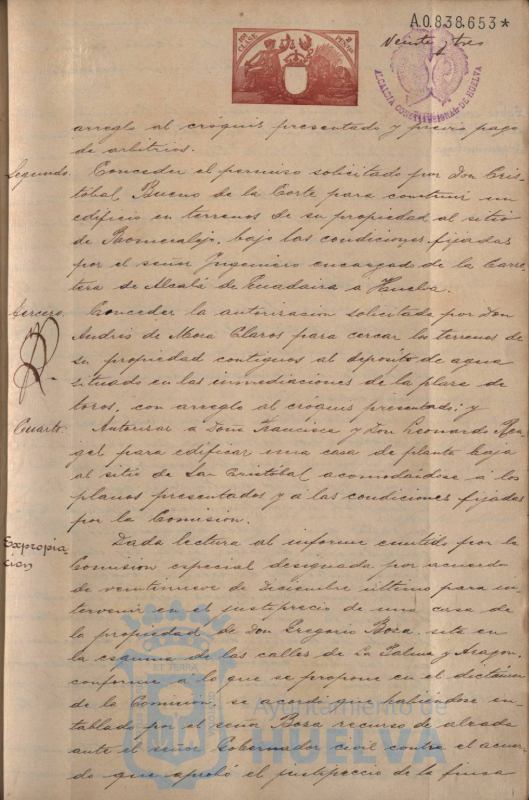 A.0.838.653*
10ª CLASE
2 PESETAS
Veinte y tres
ALCALDIA CONSTITUCIONAL DE HUELVA
arreglo al cróquis presentado y previo pago
de arbitrios.
Segundo. Conceder el permiso solicitado por Don Cris-
tóbal Bueno de la Corte para construir un
edificio en terrenos de su propiedad al sitio
de Romeralejo, bajo las condiciones fijadas
por el señor Ingeniero encargado de la Carre-
tera de Alcalá de Guadaira a Huelva.
Tercero. Conceder la autorizacion solicitada por Don
Andrés de Mora Claros para cercar los terrenos de
su propiedad contiguos al deposito de agua
situado en las inmediaciones de la plaza de
toros, con arreglo al cróquis presentado; y
Cuarto. Autorizar a Doña Francisca y Don Leonardo
para edificar una casa de planta baja
al sitio de San Cristóbal acomodandose á los
planos presentados y a las condiciones fijadas
por la Comision.
Expropia-
cion
Dada lectura al informe emitido por la
Comision especial designada por acuerdo
de veintinueve de Diciembre último para in-
tervenir en el justiprecio de una casa de
la propiedad de Don Gregorio Bosa, sita en
la esquina de las calles de La Palma y Aragon,
conforme a lo que se propone en el dictámen
de la Comision, se acordó: habiendose en-
tablado por el señor Bosa recurso de alzada
ante el señor Gobernador civil contra el acuer-
do que aprobó el justiprecio de la finca
Ayuntamiento de
HUELVA